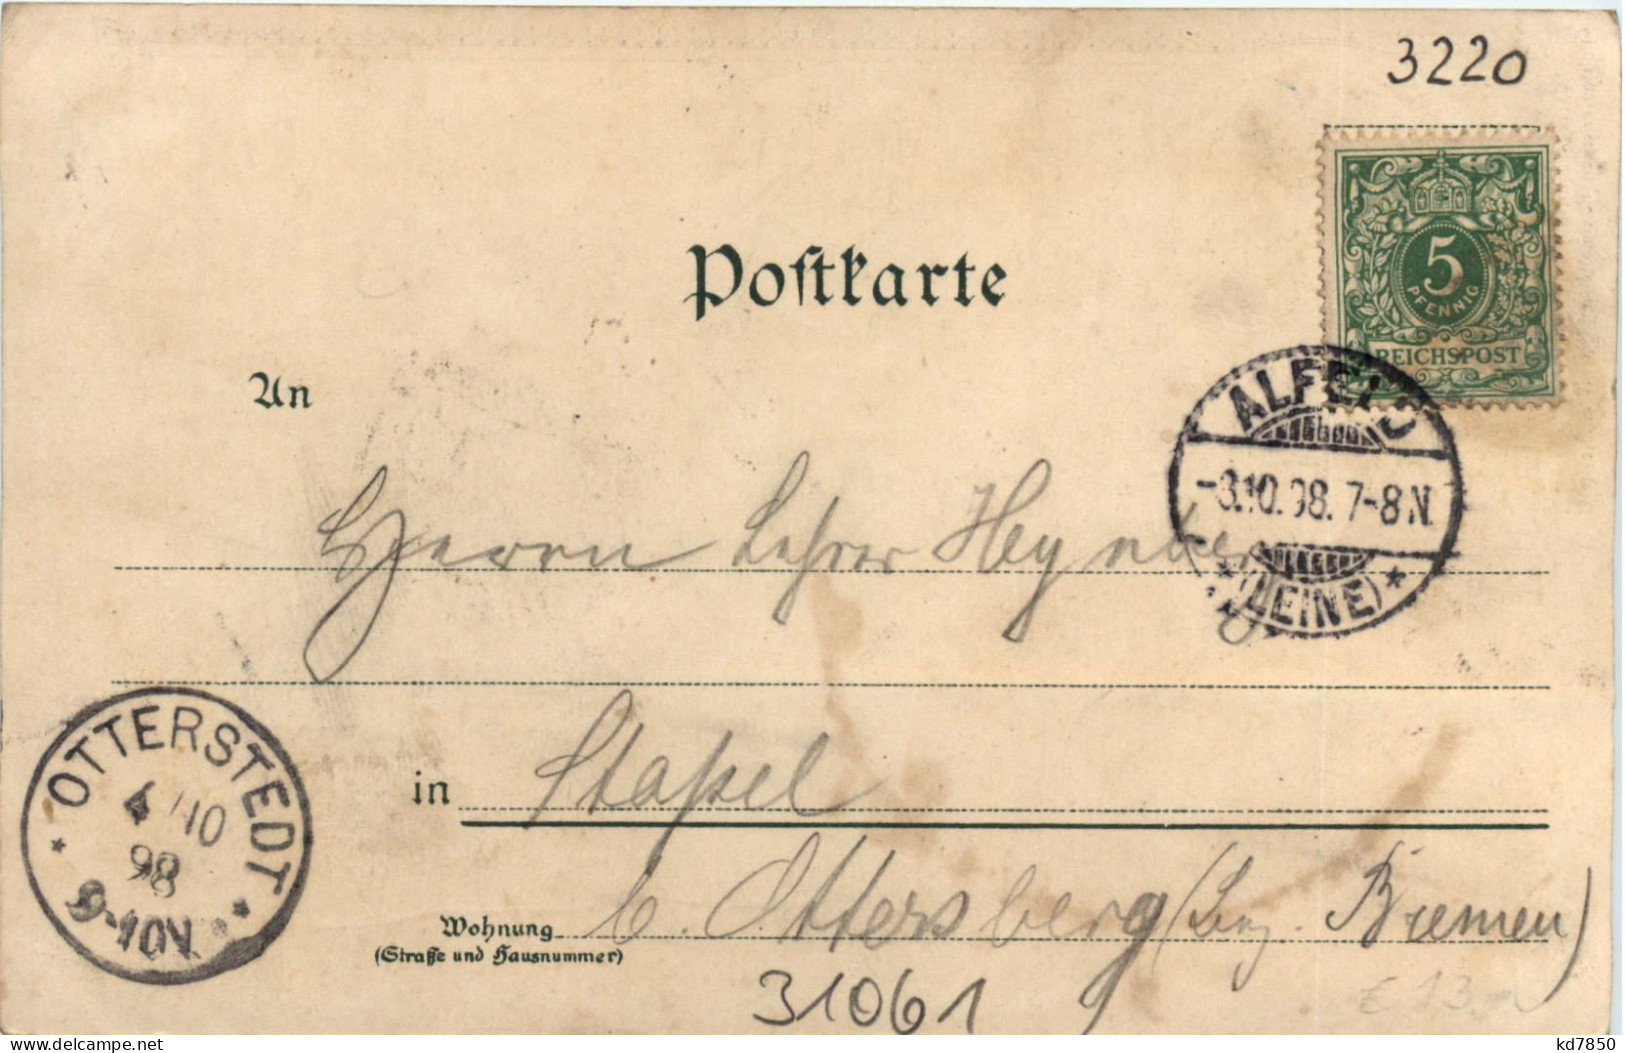 3220
5
PFENNIG
REICHSPOST
Postkarte
ALFELD
-3.10.98. 7-8N.
* (LEINE) *
An
Herrn Lehrer
in Stapel
OTTERSTEDT
4/10
98
9-10N
Wohnung b. Ottersberg (Bez. Bremen)
(Straße und Hausnummer)
31061
€ 13.-
delcampe.net
kd7850